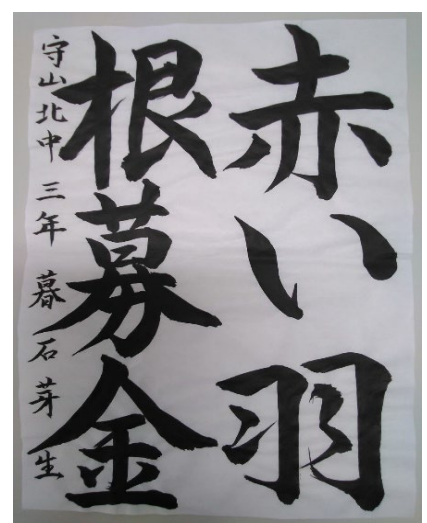 赤い羽
根募金
守山北中 三年 暮石芽生